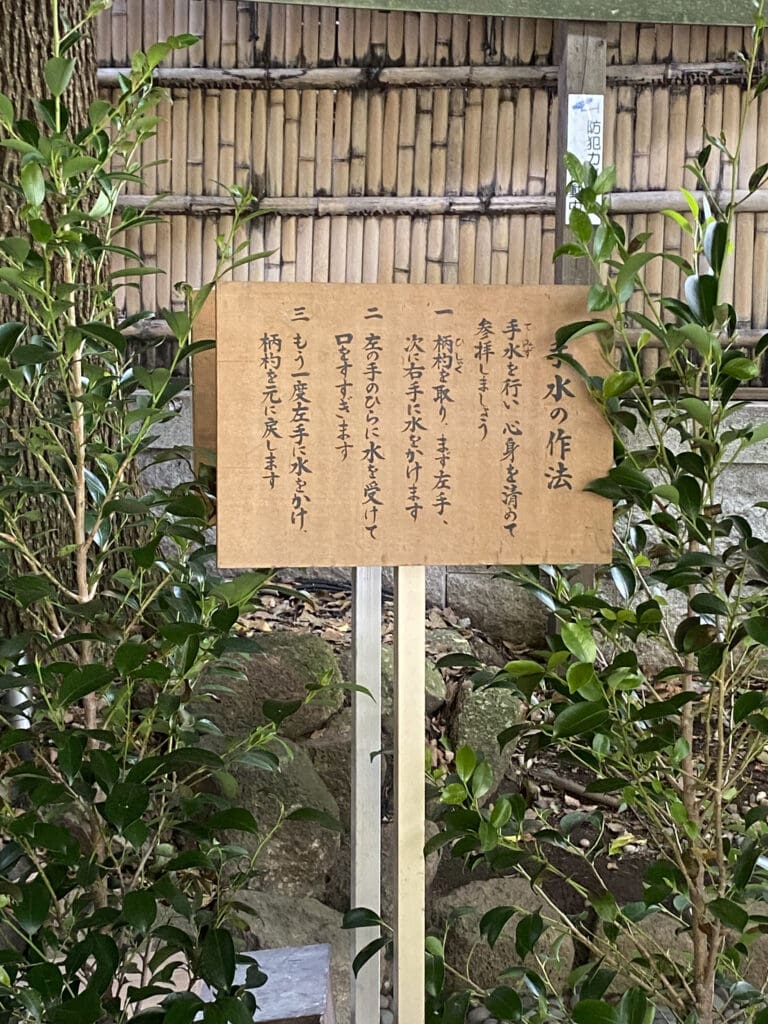 手水の作法
てみず
手水を行い 心身を清めて
参拝しましょう
ひしゃく
一 柄杓を取り、まず左手、
次に右手に水をかけます
二 左の手のひらに水を受けて
口をすすぎます
三 もう一度左手に水をかけ、
柄杓を元に戻します
防犯カ
中